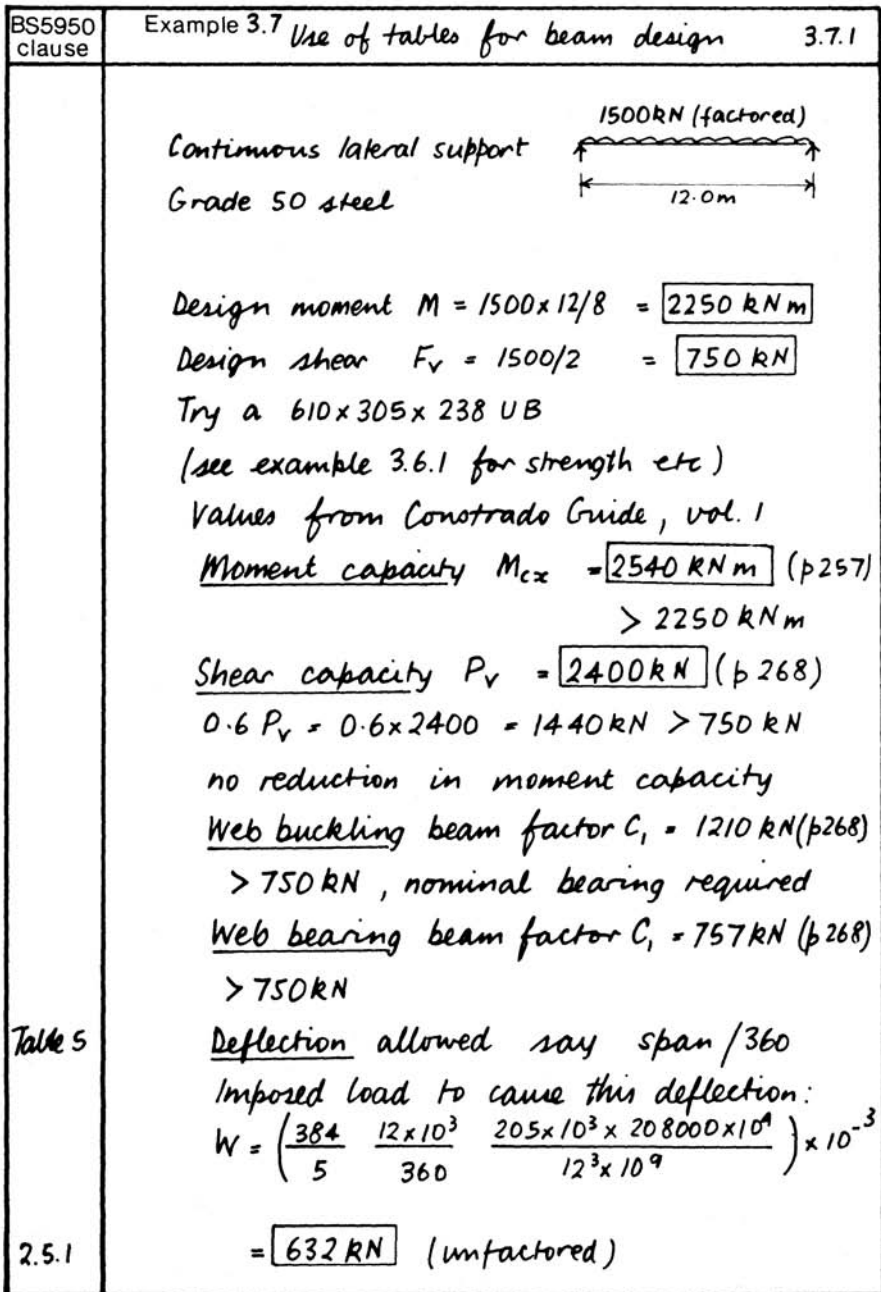 BS5950 clause
Example 3.7 Use of tables for beam design 3.7.1
1500kN (factored)
Continuous lateral support
Grade 50 steel
12.0m
Design moment M = 1500 x 12/8 = 2250 kN m
Design shear Fv = 1500/2 = 750 kN
Try a 610 x 305 x 238 UB
(see example 3.6.1 for strength etc)
Values from Constrado Guide, vol. 1
Moment capacity Mcx = 2540 kN m (p257)
> 2250 kN m
Shear capacity Pv = 2400 kN (p 268)
0.6 Pv = 0.6 x 2400 = 1440 kN > 750 kN
no reduction in moment capacity
Web buckling beam factor C1 = 1210 kN (p268)
> 750 kN, nominal bearing required
Web bearing beam factor C1 = 757 kN (p 268)
> 750 kN
Table 5 Deflection allowed say span / 360
Imposed load to cause this deflection:
W = (384/5 12x10³/360 205x10³ x 208000x10⁴/12³x10⁹) x 10⁻³
2.5.1 = 632 kN (unfactored)